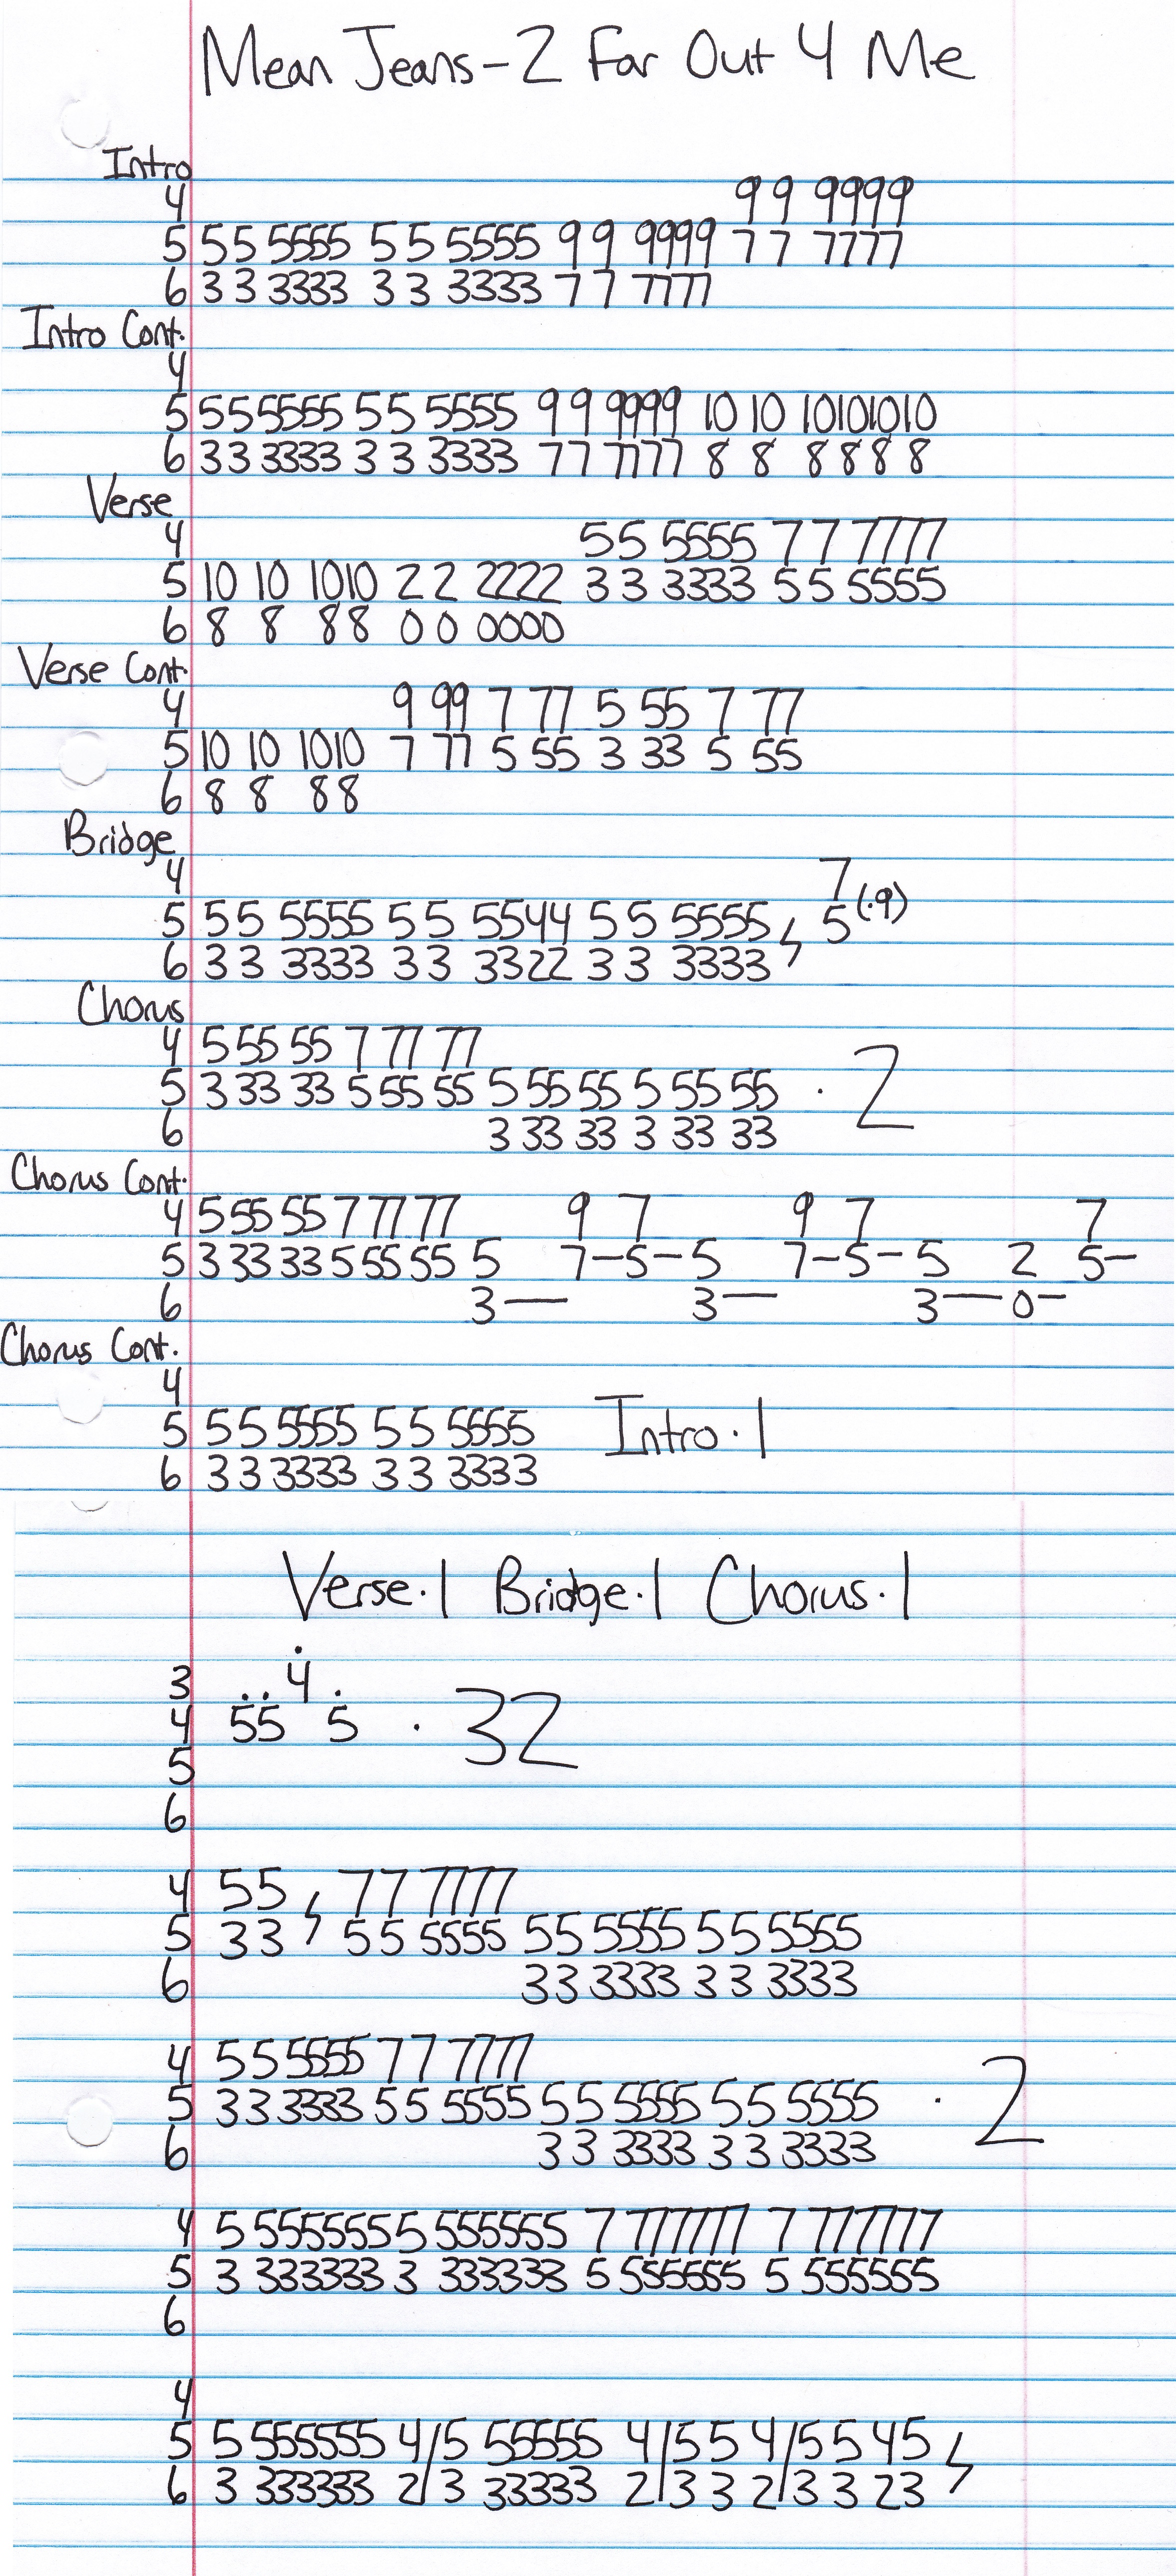 Mean Jeans - 2 Far Out 4 Me
Intro
4 9 9 9999
5 5 5 5555 5 5 5555 9 9 9999 7 7 7777
6 3 3 3333 3 3 3333 7 7 7777
Intro Cont.
4
5 5 5 5555 5 5 5555 9 9 9999 10 10 10101010
6 3 3 3333 3 3 3333 7 7 7777 8 8 8 8 8 8
Verse
4 5 5 5555 7 7 7777
5 10 10 1010 2 2 2222 3 3 3333 5 5 5555
6 8 8 8 8 0 0 0000
Verse Cont.
4 9 99 7 77 5 55 7 77
5 10 10 1010 7 77 5 55 3 33 5 55
6 8 8 8 8
Bridge
4 7
5 5 5 5555 5 5 5544 5 5 5555 5 (.9)
6 3 3 3333 3 3 3322 3 3 3333
Chorus
4 5 55 55 7 77 77
5 3 33 33 5 55 55 5 55 55 5 55 55 . 2
6 3 33 33 3 33 33
Chorus Cont.
4 5 55 55 7 77 77 9 7 9 7 7
5 3 33 33 5 55 55 5 7-5-5 7-5-5 2 5-
6 3— 3— 3—0-
Chorus Cont.
4
5 5 5 5555 5 5 5555 Intro . 1
6 3 3 3333 3 3 3333
Verse . 1 Bridge . 1 Chorus . 1
3 4
4 55 5 . 32
5
6
4 5 5 7 7 7777
5 3 3 5 5 5555 5 5 5555 5 5 5555
6 3 3 3333 3 3 3333
4 5 5 5555 7 7 7777
5 3 3 3333 5 5 5555 5 5 5555 5 5 5555 . 2
6 3 3 3333 3 3 3333
4 5 555555 5 555555 7 777777 7 777777
5 3 333333 3 333333 5 555555 5 555555
6
4
5 5 555555 4/5 55555 4/5 5 4/5 5 45
6 3 333333 2/3 33333 2/3 3 2/3 3 23